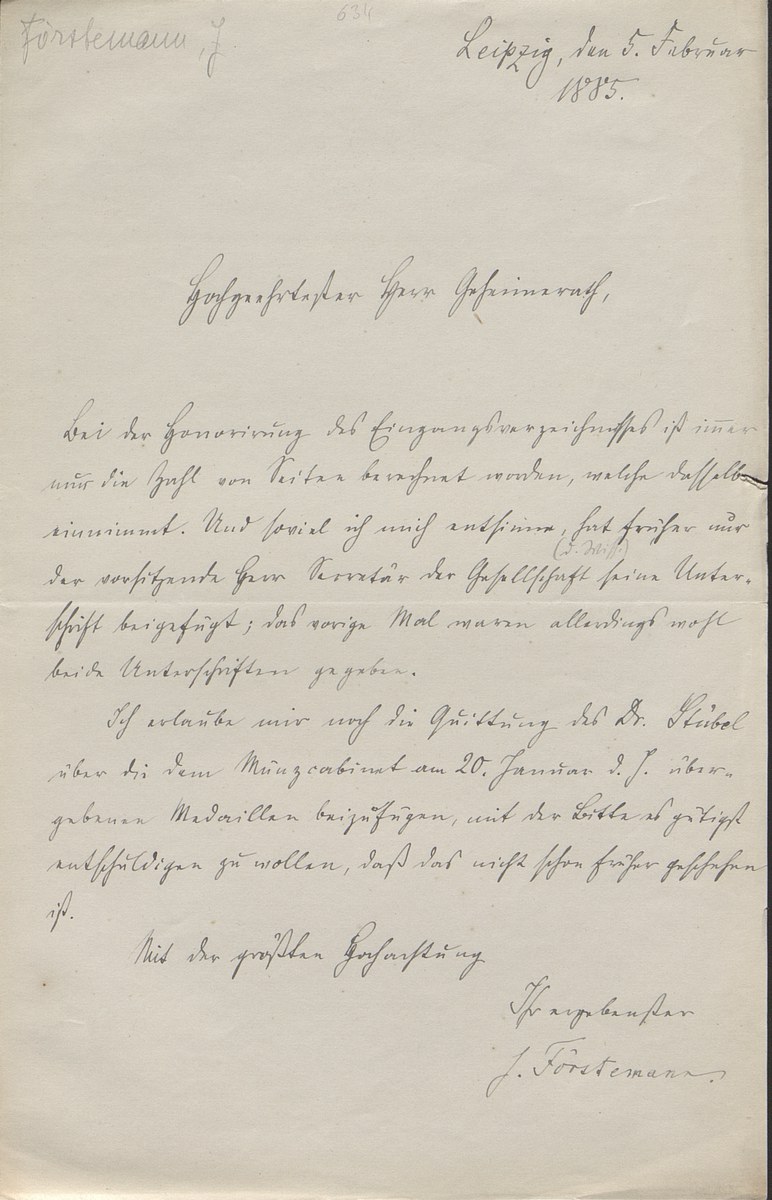 634
Förstemann, J.
Leipzig, den 5. Februar
1885.
Hochgeehrtester Herr Geheimerath,
Bei der Honorirung des Eingangsverzeichnisses ist immer
nur die Zahl von Seiten berechnet worden, welche dasselbe
einnimmt. Und soviel ich mich entsinne, hat früher nur
(d. Wiss.)
der vorsitzende Herr Secretär der Gesellschaft seine Unter-
schrift beigefügt; das vorige Mal waren allerdings wohl
beide Unterschriften gegeben.
Ich erlaube mir noch die Quittung des Dr. Stübel
über die dem Münzcabinet am 20. Januar d. J. über-
gebenen Medaillen beizufügen, mit der Bitte es gütigst
entschuldigen zu wollen, daß das nicht schon früher geschehen
ist.
Mit der größten Hochachtung
Ihr ergebenster
J. Förstemann.